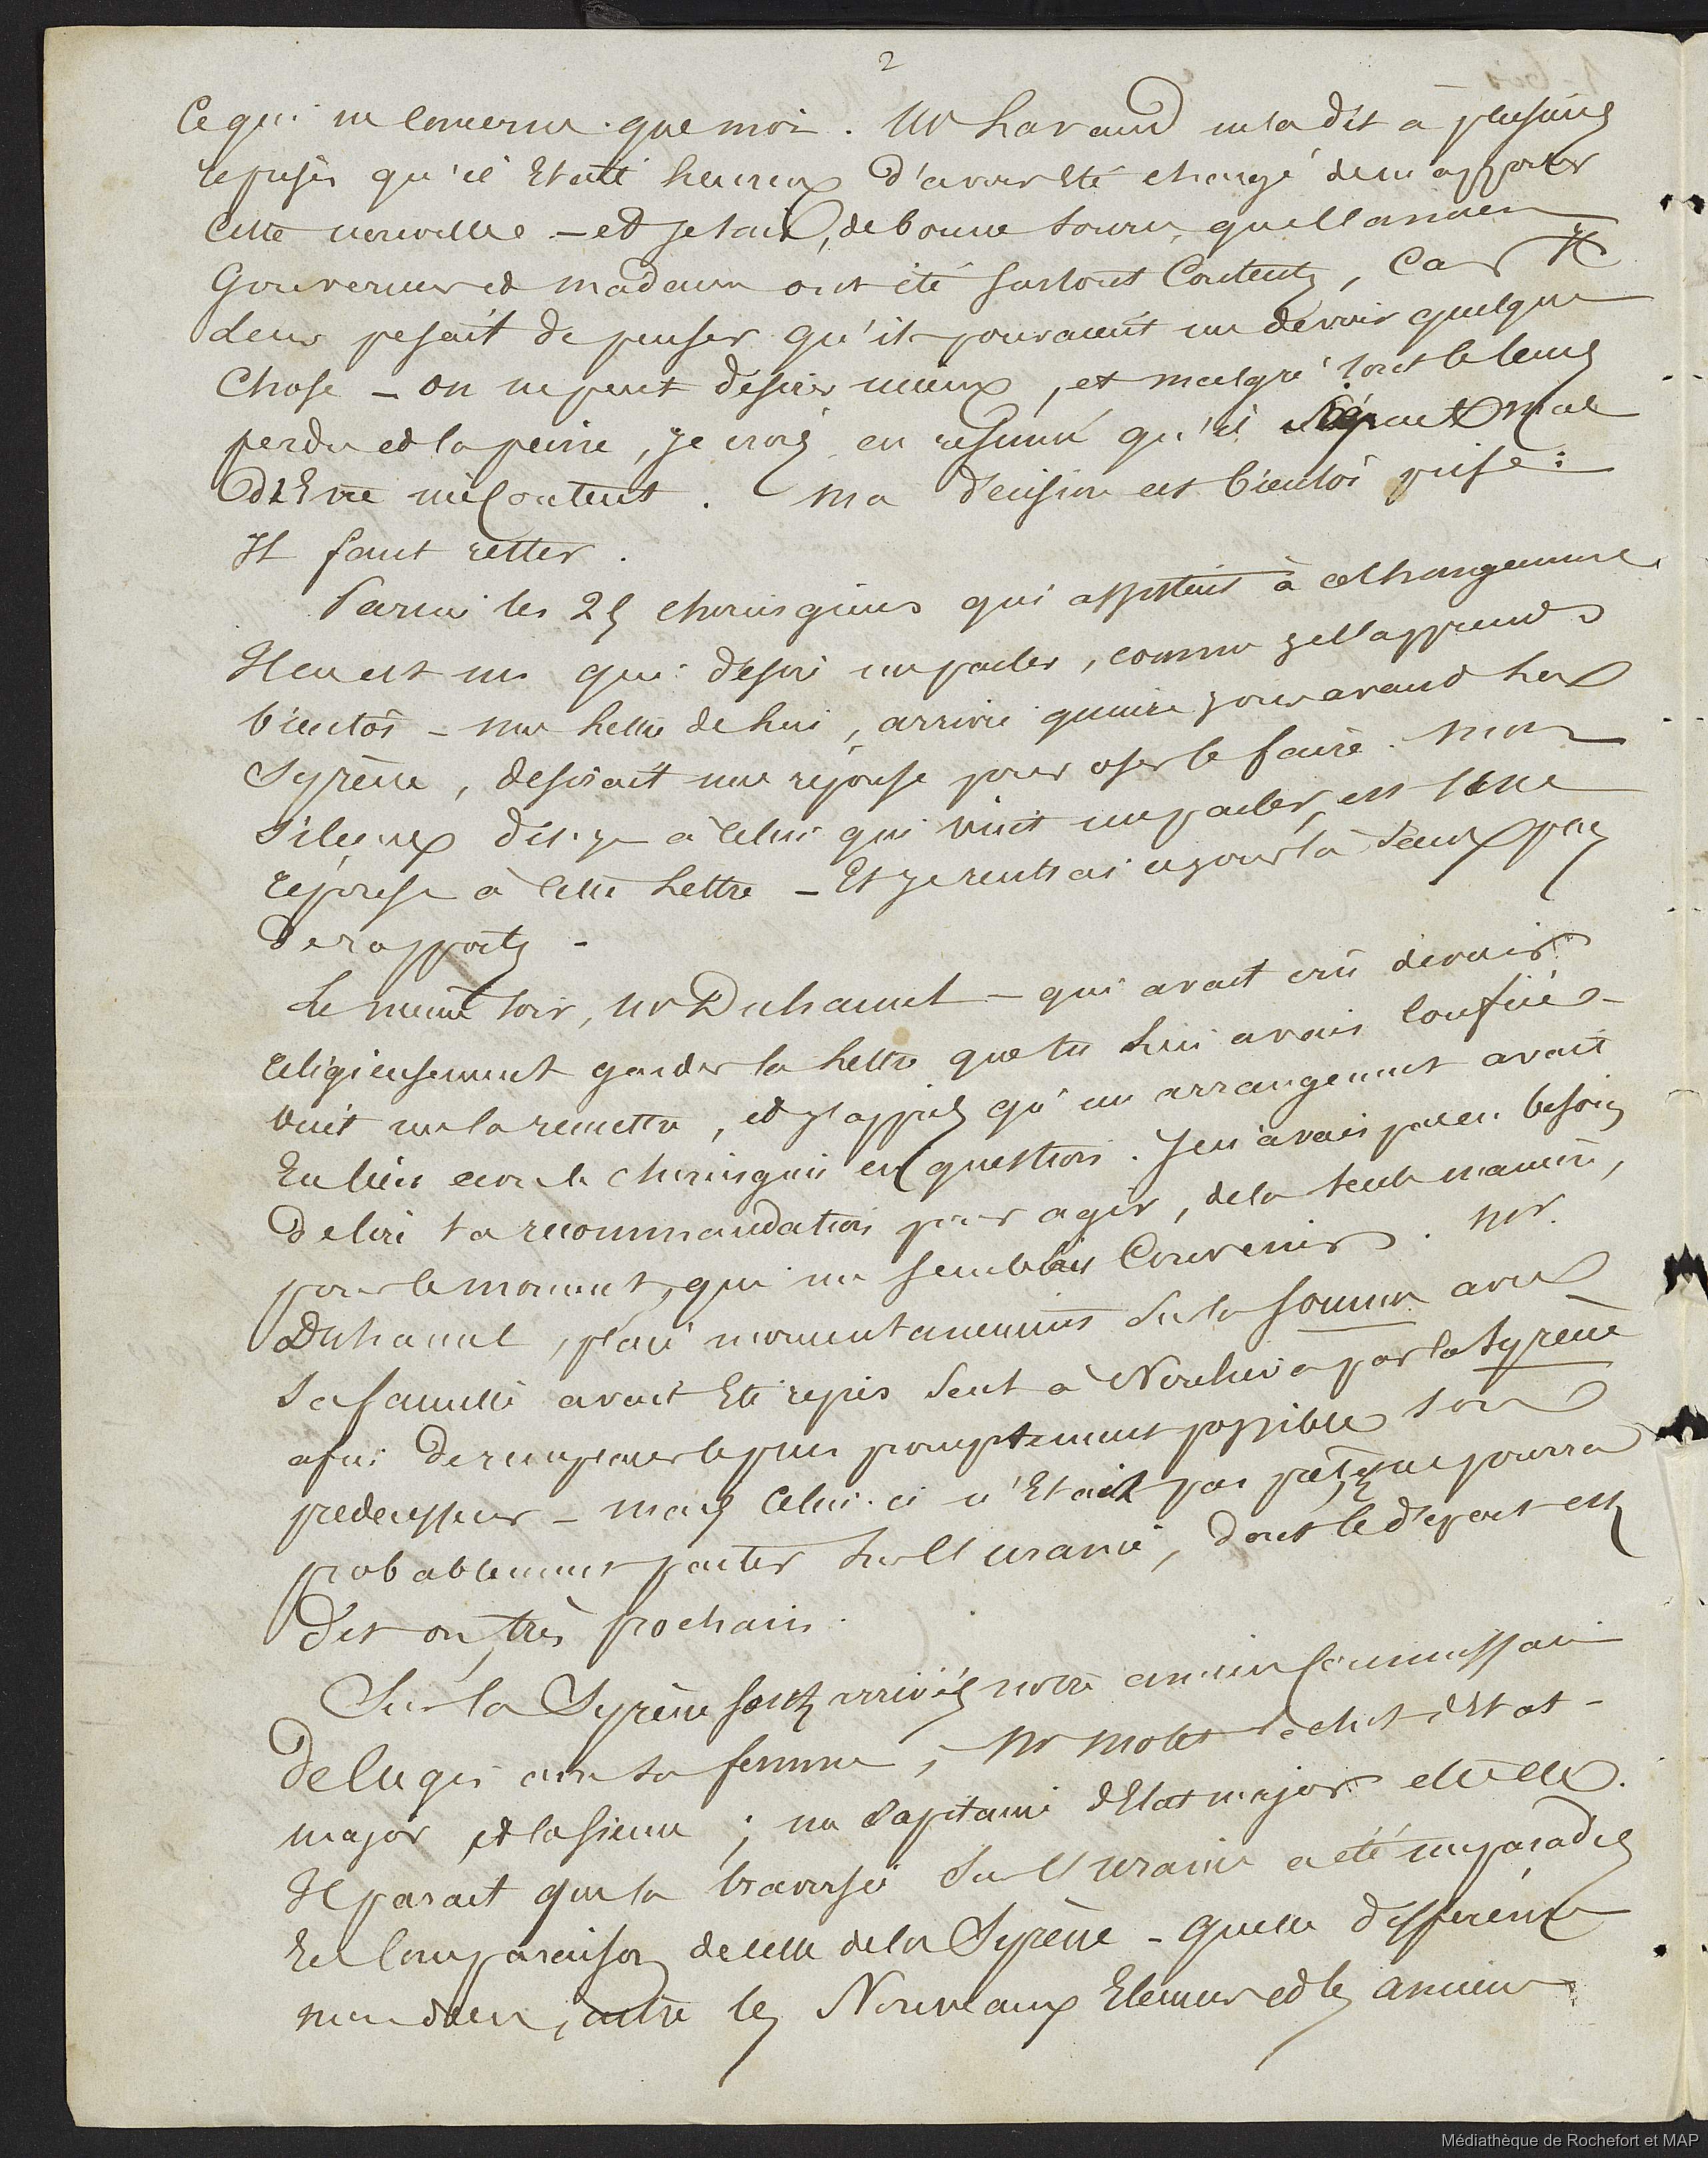 2
Ce qui ne concerne que moi. Mr Lavaud m'a dit à plusieurs
reprises qu'il Etait heureux d'avoir Eté chargé de m'apporter
cette nouvelle - et je sais, de bonne source, que l'ancien
Gouverneur et madame ont été surtout Contents, Car Il
leur pesait de penser qu'ils pouvaient me devoir quelque
Chose - on ne peut désirer mieux, et malgré tout le temps
perdu et la peine, je crois en résumé qu'il mal
d'Etre mécontent. Ma décision est bientôt prise :
Il faut rester.
Parmi les 25 chirurgiens qui assistent à ce changement
Il en est un qui désire me parler, comme je l'apprends
bientôt - une lettre de lui, arrivée quinze jours avant la
Syrène, désirait une réponse pour oser le faire. Mon
silence dis-je à celui qui vint me parler, est une
réponse à cette lettre - Et je rentrai ce jour là
de rapports -
Le même soir, Mr Duhamel - qui avait crû devoir
religieusement garder la lettre que tu lui avais confiée -
vint me la remettre, et j'appris qu'un arrangement avait
Eu lieu avec le chirurgien en question. Je n'avais pas eu besoin
de lire ta recommandation pour agir, de la seule manière,
pour le moment, qui me semblait Convenir. Mr.
Duhamel, placé momentanément sur la Somme avec
sa famille avait Eté repris seul à Noukiva par la Syrène
afin de remplacer le plus promptement possible son
prédécesseur - mais celui-ci n'Etait pas prêt, et ne pourra
probablement partir sur l'uranie, dont le départ est
dit-on, très prochain.
Sur la Syrène sont arrivés notre ancien Commissaire
de avec sa femme ; Mr chef d'Etat-
major et la sienne ; un Capitaine d'Etat major
Il parait que la traversée sur l'uranie a été un paradis
En Comparaison de celle de la Syrène - quelle différence
mon dieu, entre les Nouveaux Elemens et les anciens
Médiathèque de Rochefort et MAP